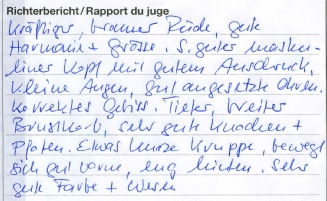 Richterbericht / Rapport du juge
kräftiger, brauner Rüde, gute
Harmonie + Grösse. S. guter masku-
liner Kopf mit gutem Ausdruck,
kleine Augen, gut angesetzte Ohren.
Korrektes Gebiss. Tiefer, breiter
Brustkorb, sehr gute Knochen +
Pfoten. Etwas kurze Kruppe, bewegt
sich gut vorne, eng hinten. Sehr
gute Farbe + Wesen